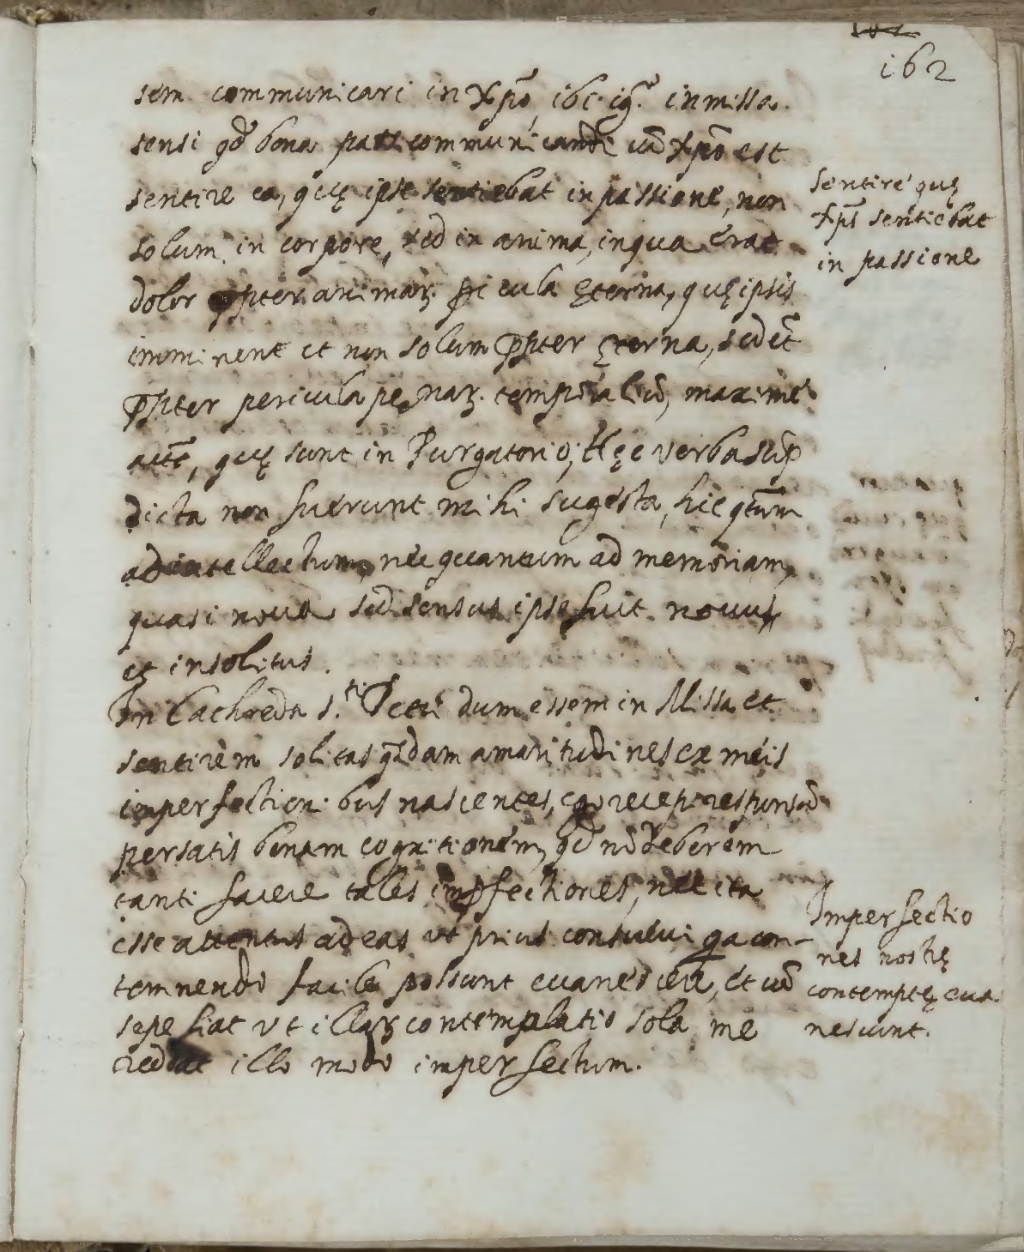 162
sem communicari in Xpõ, ibi. ig̃. in missa.
sensi qd̃ bona pars communicandi cũ Xpõ est
sentire ea, quę ipse sentiebat in passione, non
solum in corpore, sed in anima, in qua erat
dolor ꝓpter animaꝝ ꝑicula ęterna, quę ipsis
imminent et non solum ꝓpter ęterna, sed et̃
ꝓpter pericula penaꝝ. temporaliũ, maximé
aut̃, quę sunt in Purgatorio; Hęc verba sup̃
dicta non fuerunt mihi sugesta, hic qtũm
ad intellectum, nec quantum ad memoriam,
quasi nova sed sensus ipse fuit novus
et insolitus.
In Cathedra S.ti Petri dum essem in Missa et
sentirem solitas q̃dam amaritudines ex meis
imperfectionibus nascentes, ego recepi responsũ
per satis bonam cogitationem, qd̃ nõ deberem
tanti facere tales imꝑfectiones, nec ita
esse attentus ad eas vt prius consulvi qa con-
temnendo facile possunt evanescere, et cũ
sepe fiat vt illaꝝ contemplatio sola me
reddat illo modo imperfectum.
Sentire quę
Xp̃s sentiebat
in passione
Imperfectio
nes nostrę
contemptę eva
nescunt.